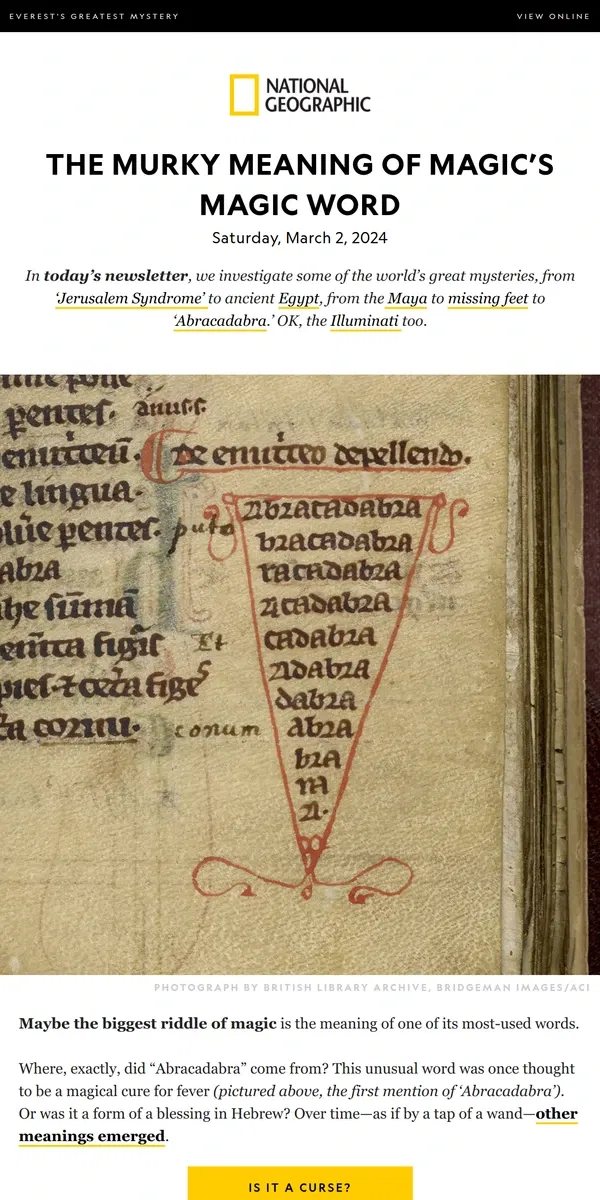 EVEREST'S GREATEST MYSTERY VIEW ONLINE
NATIONAL
GEOGRAPHIC
THE MURKY MEANING OF MAGIC’S
MAGIC WORD
Saturday, March 2, 2024
In today’s newsletter, we investigate some of the world’s great mysteries, from
‘Jerusalem Syndrome’ to ancient Egypt, from the Maya to missing feet to
‘Abracadabra.’ OK, the Illuminati too.
pentes.
depellendo.
e lingua.
pentes. puto
abra
figis Et
fige
cornu. conum
abracadabra
bracadabra
racadabra
acadabra
cadabra
adabra
dabra
abra
bra
ra
a.
PHOTOGRAPH BY BRITISH LIBRARY ARCHIVE, BRIDGEMAN IMAGES/ACI
Maybe the biggest riddle of magic is the meaning of one of its most-used words.
Where, exactly, did “Abracadabra” come from? This unusual word was once thought
to be a magical cure for fever (pictured above, the first mention of ‘Abracadabra’).
Or was it a form of a blessing in Hebrew? Over time—as if by a tap of a wand—other
meanings emerged.
IS IT A CURSE?